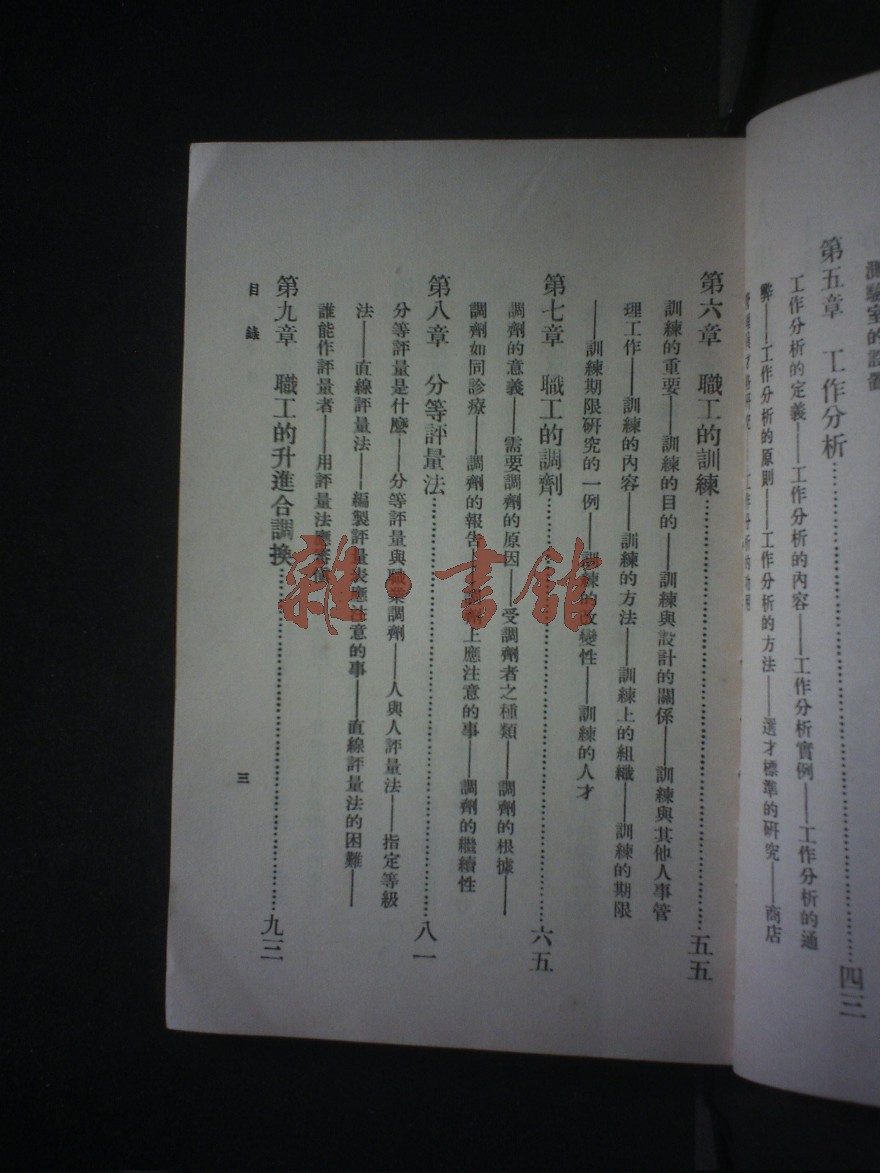 測驗室的設置
第五章　工作分析…………四三
工作分析的定義——工作分析的內容——工作分析實例——工作分析的通
弊——工作分析的原則——工作分析的方法——選才標準的研究——商店
第六章　職工的訓練…………五五
訓練的重要——訓練的目的——訓練與設計的關係——訓練與其他人事管
理工作——訓練的內容——訓練的方法——訓練上的組織——訓練的期限
——訓練期限研究的一例——訓練的改變性——訓練的人才
第七章　職工的調劑…………六五
調劑的意義——需要調劑的原因——受調劑者之種類——調劑的根據——
調劑如同診療——調劑的報告——調劑上應注意的事——調劑的繼續性
第八章　分等評量法…………八一
分等評量是什麼——分等評量與職業調劑——人與人評量法——指定等級
法——直線評量法——編製評量表應注意的事——直線評量法的困難——
誰能作評量者——用評量法應
第九章　職工的升進合調換…………九三
目錄
三
雜·書館